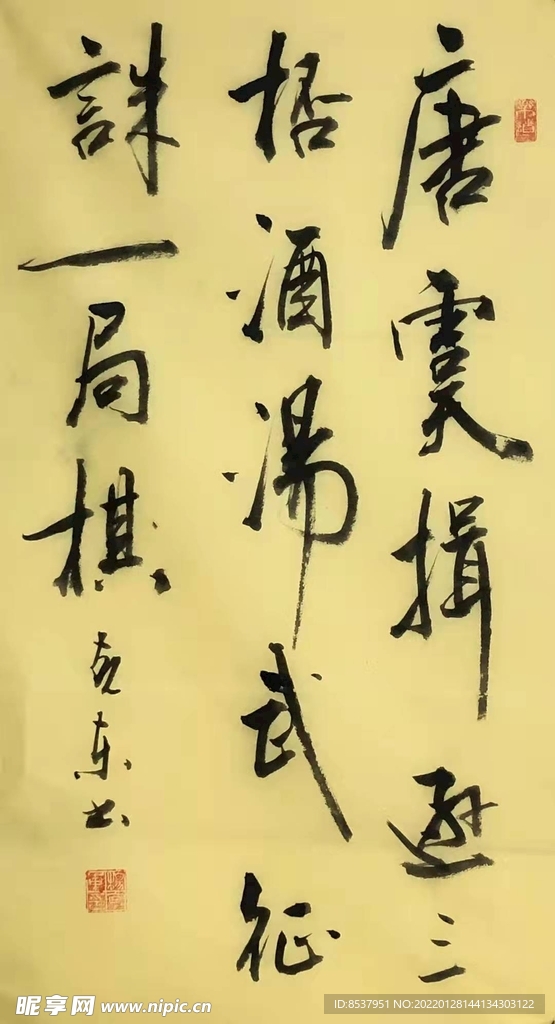 唐虞揖遜三
桮酒湯武征
誅一局棋
克东书
昵享网 www.nipic.cn
ID:8537951 NO:20220128144134303122